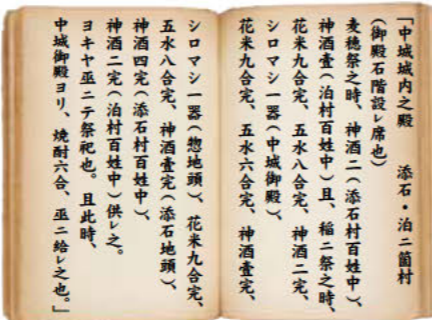 「中城城内之殿　　添石・泊二箇村
(御殿石階設レ席也)
麦穂祭之時、神酒二(添石村百姓中)、
神酒壹(泊村百姓中)且、稲二祭之時、
花米九合完、五水八合完、神酒二完、
シロマシ一器(中城御殿)、
花米九合完、五水六合完、神酒壹完、
シロマシ一器(惣地頭)、花米九合完、
五水八合完、神酒壹完(添石地頭)、
神酒四完(添石村百姓中)、
神酒二完(泊村百姓中)供レ之。
ヨキヤ巫ニテ祭祀也。且此時、
中城御殿ヨリ、焼酎六合、巫ニ給レ之也。」